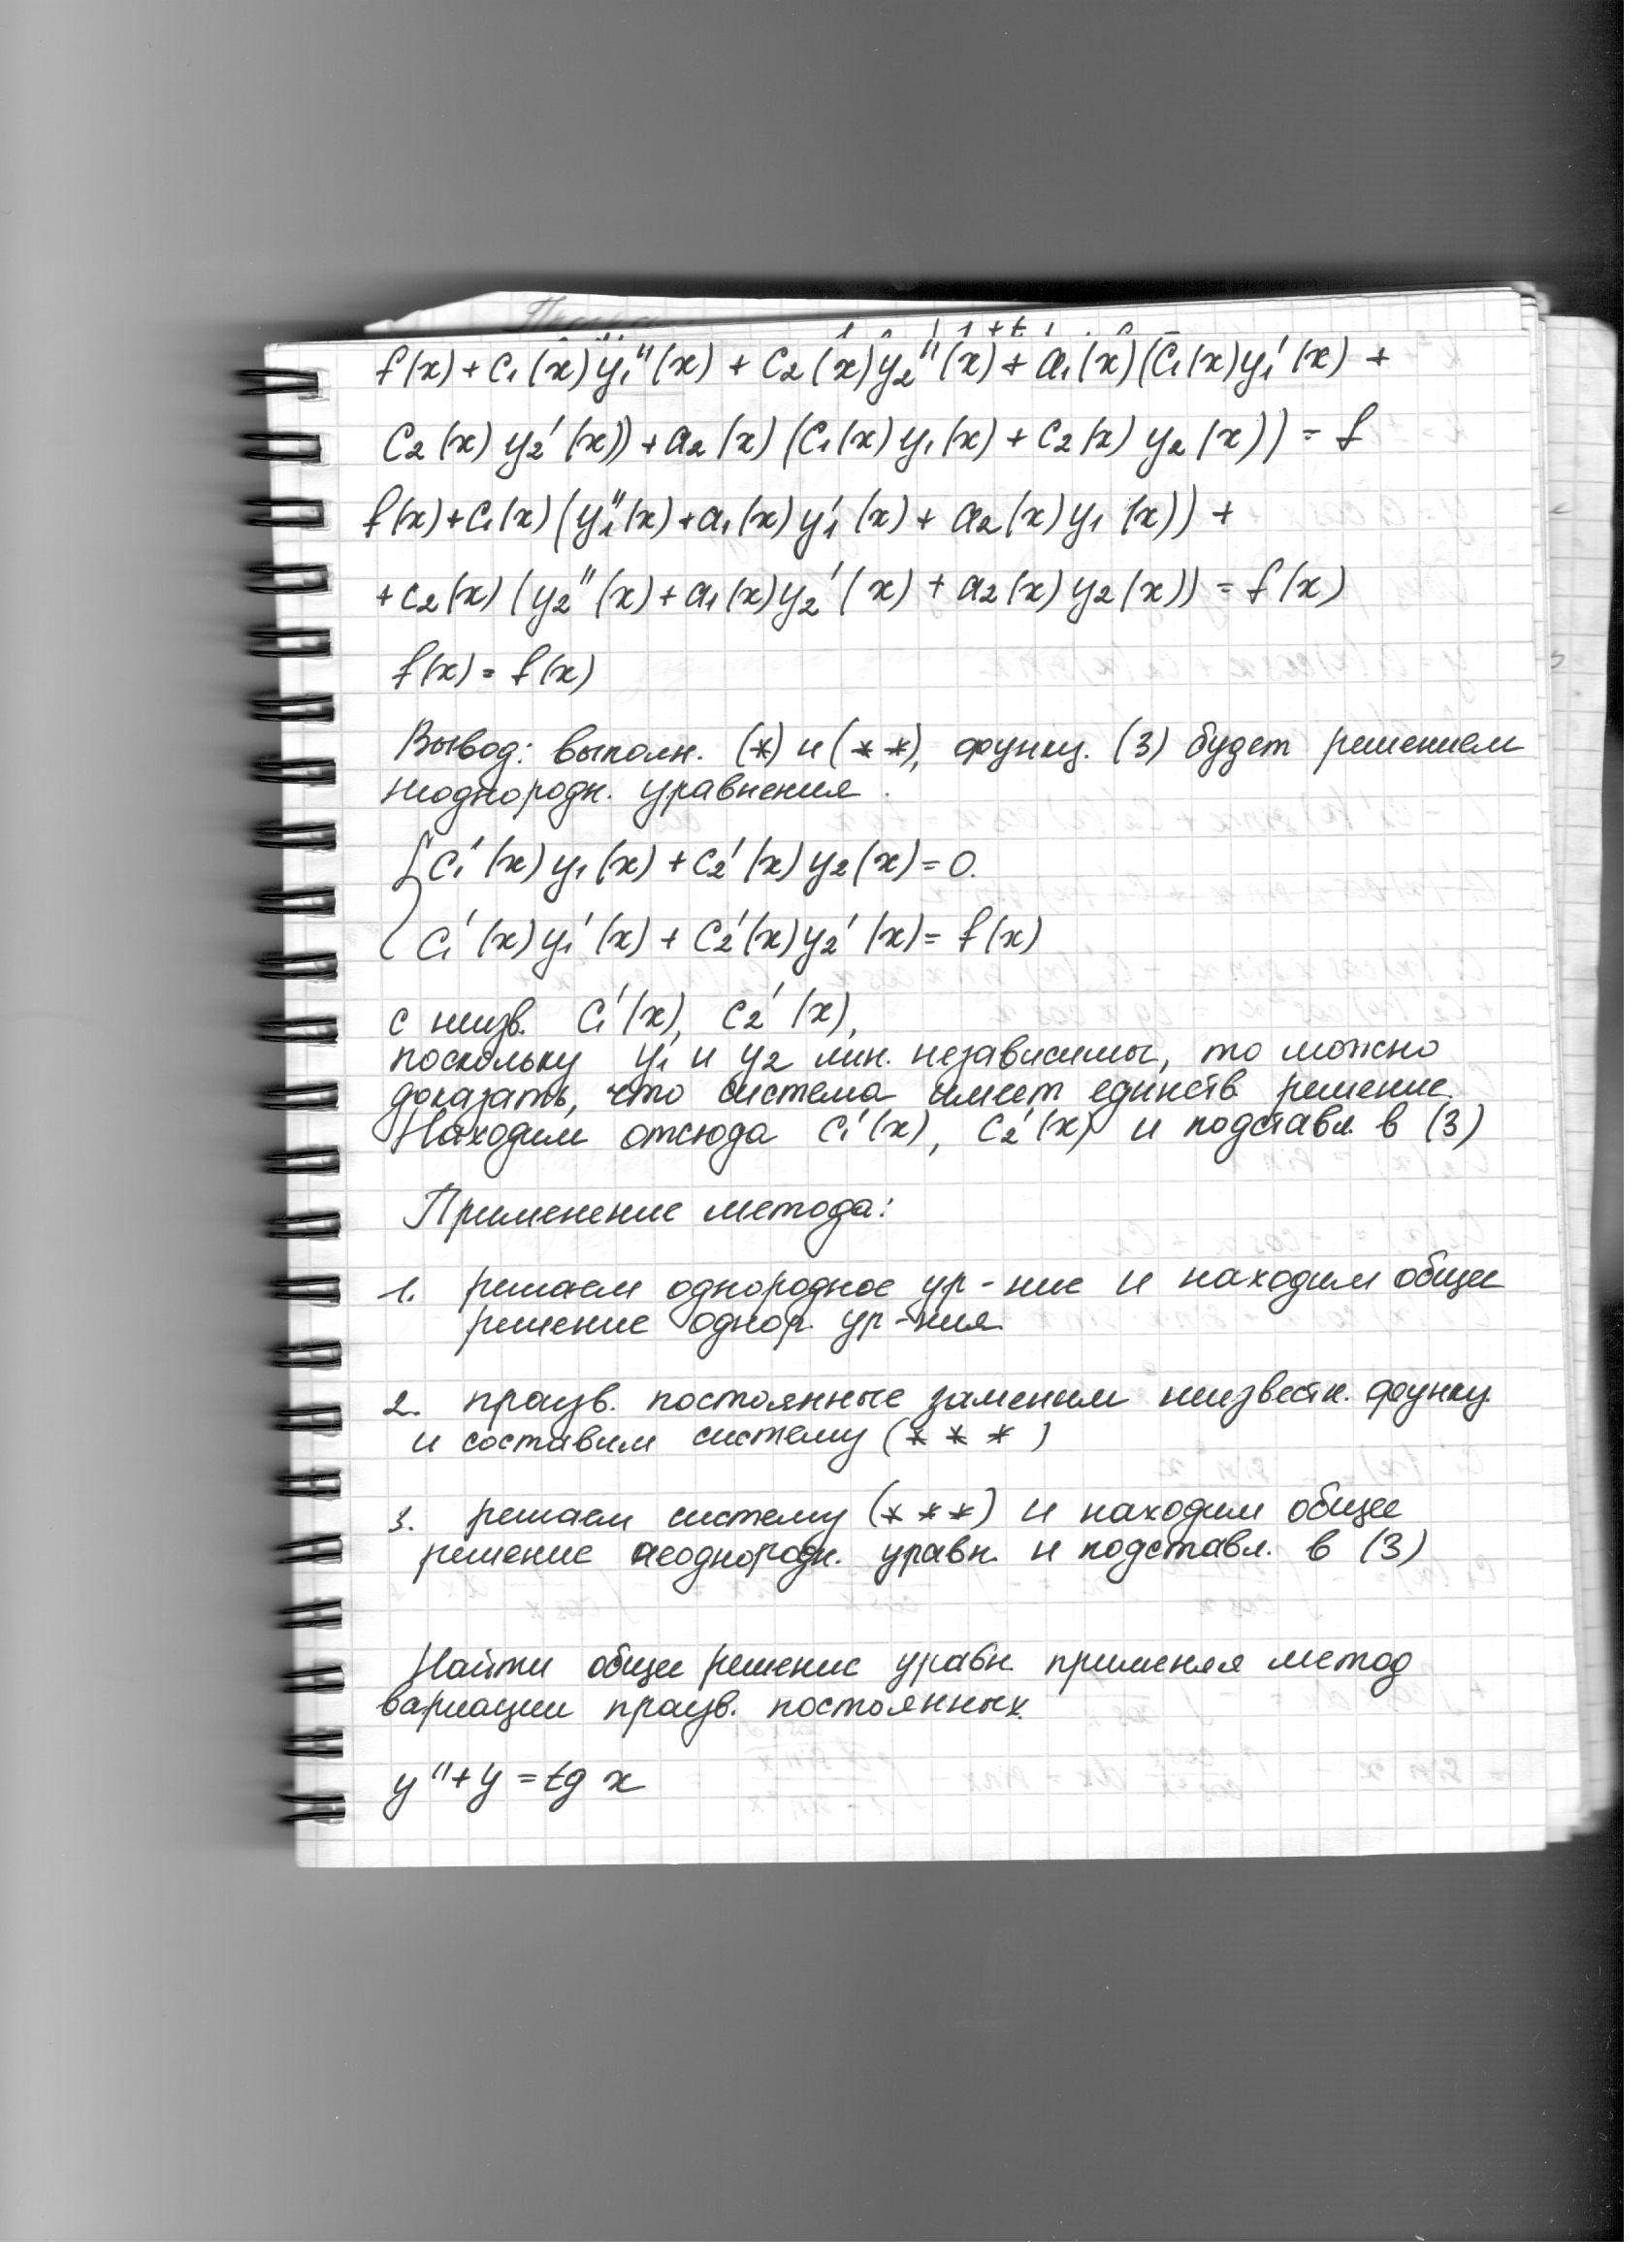 f(x)+C₁(x)y₁''(x) + C₂(x)y₂''(x) + a₁(x)(C₁(x)y₁'(x) +
C₂(x) y₂'(x)) + a₂(x) (C₁(x) y₁(x) + C₂(x) y₂(x)) = f
f(x)+C₁(x)(y₁''(x)+a₁(x)y₁'(x) + a₂(x)y₁(x)) +
+C₂(x)(y₂''(x)+a₁(x)y₂'(x) + a₂(x)y₂(x)) = f(x)
f(x) = f(x)
Вывод: выполн. (*) и (**), функц. (3) будет решением
неоднородн. уравнения.
{ C₁'(x) y₁(x) + C₂'(x) y₂(x) = 0.
C₁'(x) y₁'(x) + C₂'(x) y₂'(x) = f(x)
с неизв. C₁'(x), C₂'(x),
поскольку y₁ и y₂ лин. независимы, то можно
доказать, что система имеет единств решение.
Находим отсюда C₁'(x), C₂'(x) и подставл. в (3)
Применение метода:
1. решаем однородное ур-ние и находим общее
решение однор. ур-ния.
2. произв. постоянные заменим неизвестн. функц.
и составим систему (***)
3. решаем систему (***) и находим общее
решение неоднородн. уравн. и подставл. в (3)
Найти общее решение уравн. применяя метод
вариации произв. постоянных.
y'' + y = tg x